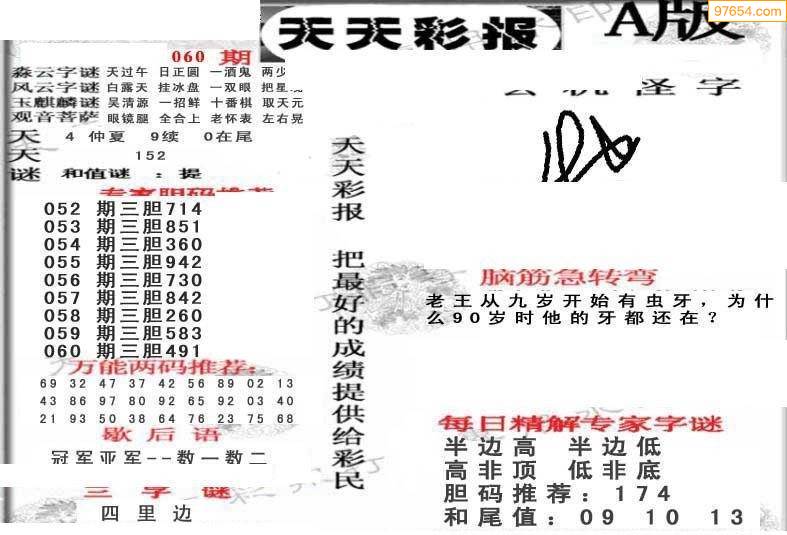 天天彩报
A版
97654.com
060 期
森云字谜 天过午 日正圆 一酒鬼 两少
风云字谜 白露天 挂冰盘 一双眼 把星
玉麒麟谜 吴清源 一招鲜 十番棋 取天元
观音菩萨 眼镜腿 全合上 老怀表 左右晃
天 4 仲夏 9续 0在尾
天 152
谜 和值谜 : 提
专家胆码推荐
052 期三胆714
053 期三胆851
054 期三胆360
055 期三胆942
056 期三胆730
057 期三胆842
058 期三胆260
059 期三胆583
060 期三胆491
万能两码推荐:
69 32 47 37 42 56 89 02 13
43 86 97 80 92 65 92 03 40
21 93 50 38 64 76 23 75 68
歇后语
冠军亚军--数一数二
三字谜
四里边
天天彩报 把最好的成绩提供给彩民
玄机怪字
脑筋急转弯
老王从九岁开始有虫牙，为什
么90岁时他的牙都还在？
每日精解专家字谜
半边高 半边低
高非顶 低非底
胆码推荐: 174
和尾值: 09 10 13